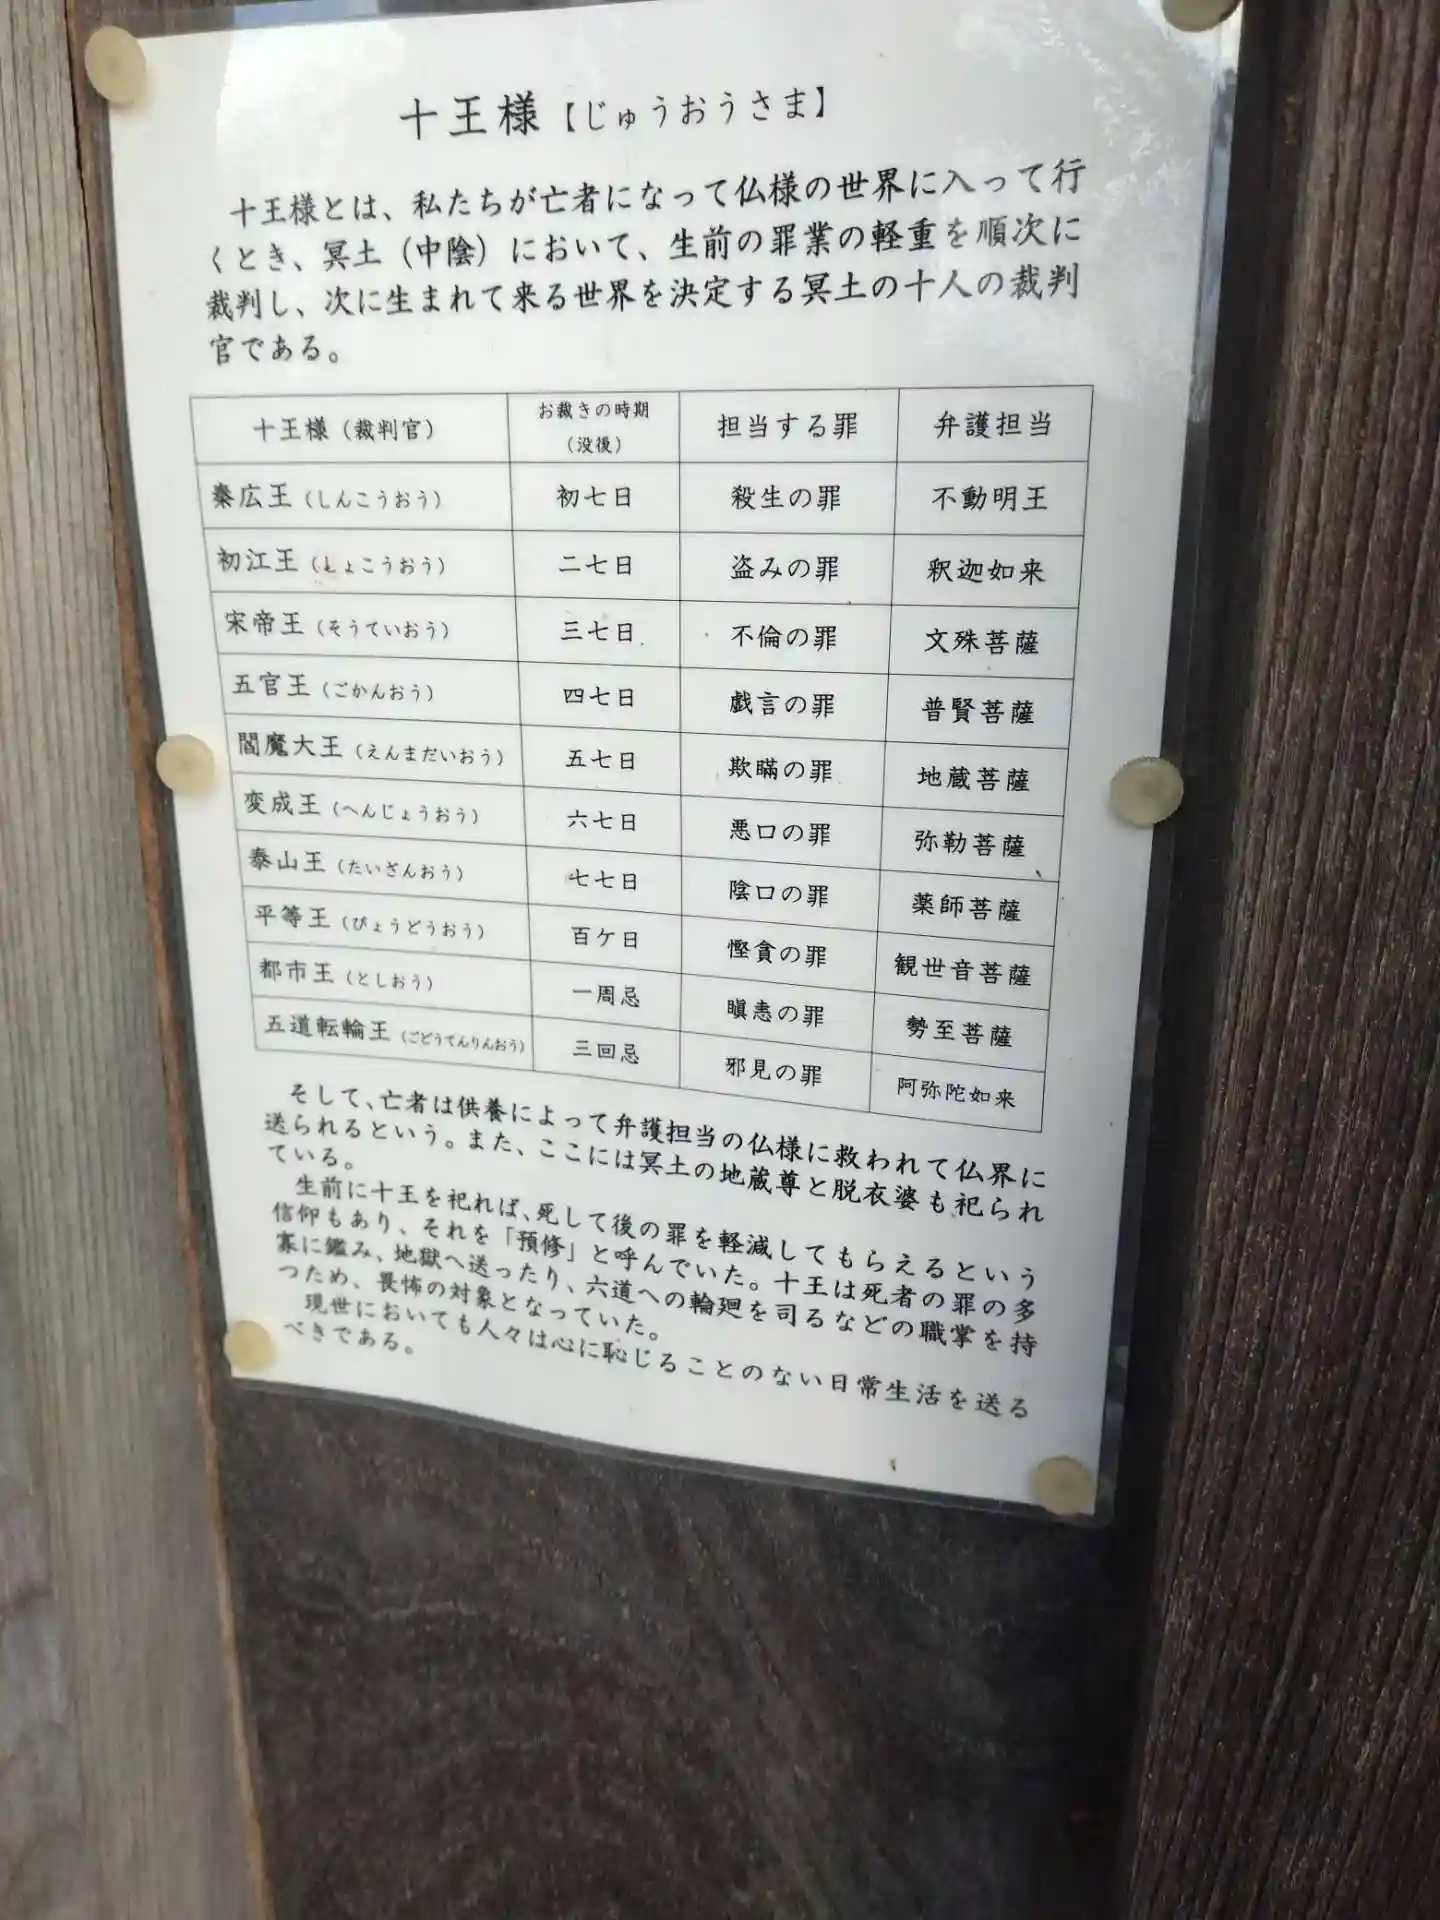 十王様【じゅうおうさま】
十王様とは、私たちが亡者になって仏様の世界に入って行
くとき、冥土（中陰）において、生前の罪業の軽重を順次に
裁判し、次に生まれて来る世界を決定する冥土の十人の裁判
官である。
十王様（裁判官） お裁きの時期（没後） 担当する罪 弁護担当
秦広王（しんこうおう） 初七日 殺生の罪 不動明王
初江王（しょこうおう） 二七日 盗みの罪 釈迦如来
宋帝王（そうていおう） 三七日 不倫の罪 文殊菩薩
五官王（ごかんおう） 四七日 戯言の罪 普賢菩薩
閻魔大王（えんまだいおう） 五七日 欺瞞の罪 地蔵菩薩
変成王（へんじょうおう） 六七日 悪口の罪 弥勒菩薩
泰山王（たいざんおう） 七七日 陰口の罪 薬師菩薩
平等王（びょうどうおう） 百ケ日 慳貪の罪 観世音菩薩
都市王（としおう） 一周忌 瞋恚の罪 勢至菩薩
五道転輪王（ごどうてんりんおう） 三回忌 邪見の罪 阿弥陀如来
そして、亡者は供養によって弁護担当の仏様に救われて仏界に
送られるという。また、ここには冥土の地蔵尊と脱衣婆も祀られ
ている。
生前に十王を祀れば、死して後の罪を軽減してもらえるという
信仰もあり、それを「預修」と呼んでいた。十王は死者の罪の多
寡に鑑み、地獄へ送ったり、六道への輪廻を司るなどの職掌を持
つため、畏怖の対象となっていた。
現世においても人々は心に恥じることのない日常生活を送る
べきである。